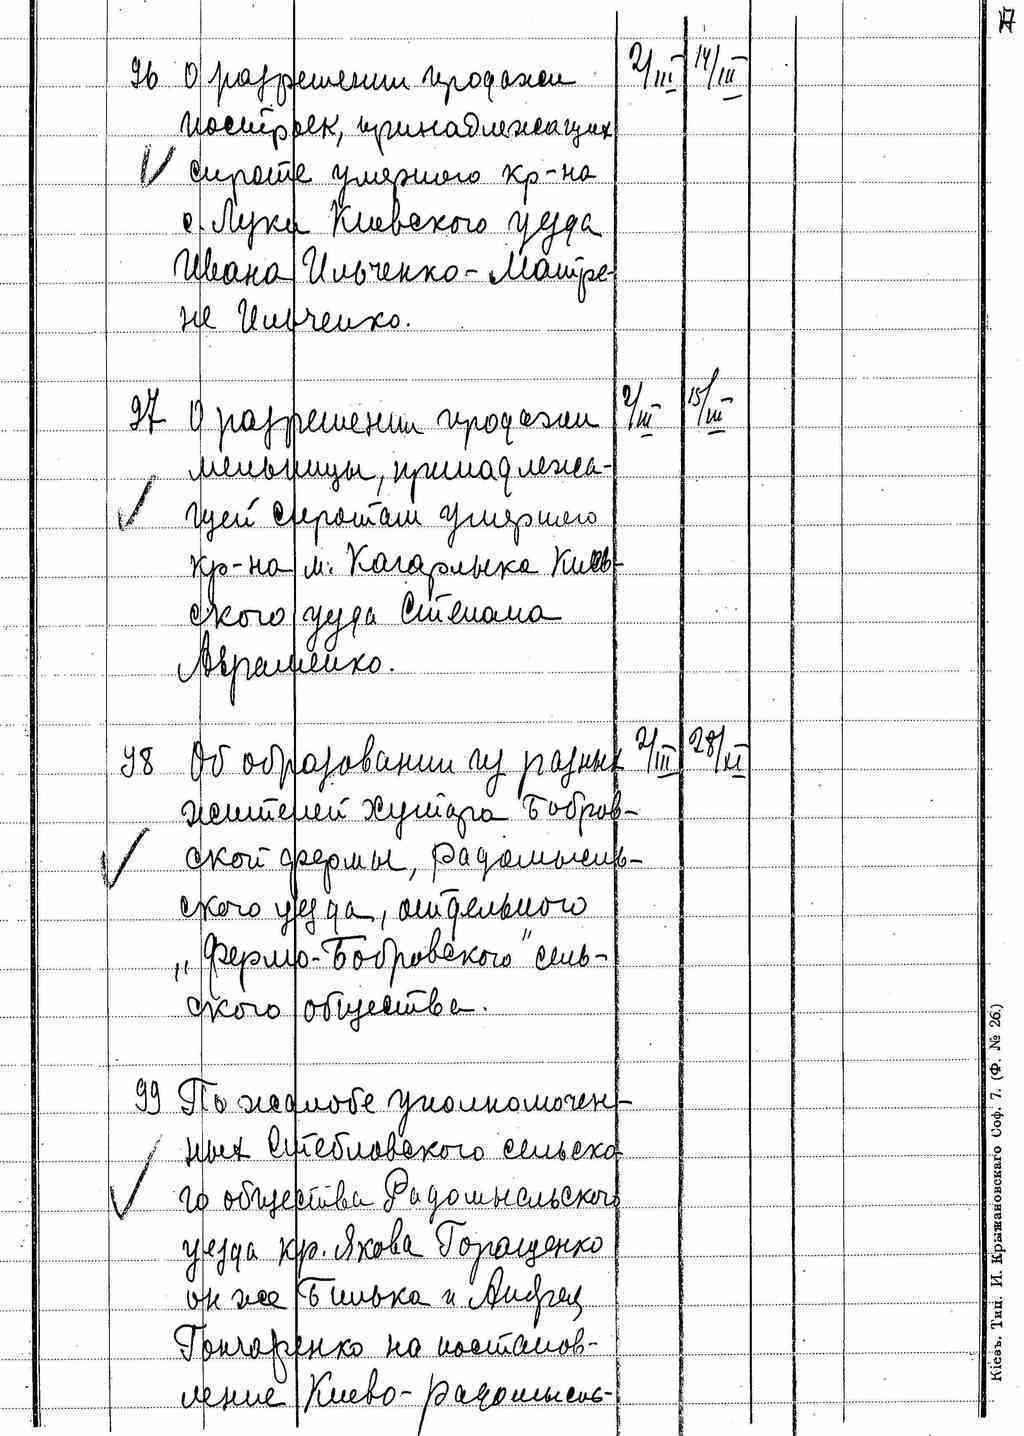 17
96 О разрешении продажи 2/III 14/III
построек, принадлежащих
сироте умершого кр-на
с. Луки Киевского уезда
Ивана Ильченко - Матре-
не Ильченко.
97 О разрешении продажи 2/III 15/III
мельницы, принадлежа-
щей сиротам умершого
кр-на м. Кагарлыка Киев-
ского уезда Степана
Авраменко.
98 Об образовании из разных 2/III 28/XI
жителей хутора Бобров-
ской фермы, Радомысль-
ского уезда, отдельного
„Фермо-Бобровского" сель-
ского общества.
99 По жалобе уполномочен-
ных Стебловского сельско
го общества Радомысльского
уезда кр. Якова Горащенко
он же Билька и Андрея
Гончаренко на постанов-
ление Киево-Радомысль-
Кіевъ. Тип. И. Крыжановскаго Соф. 7. (Ф. № 26.)